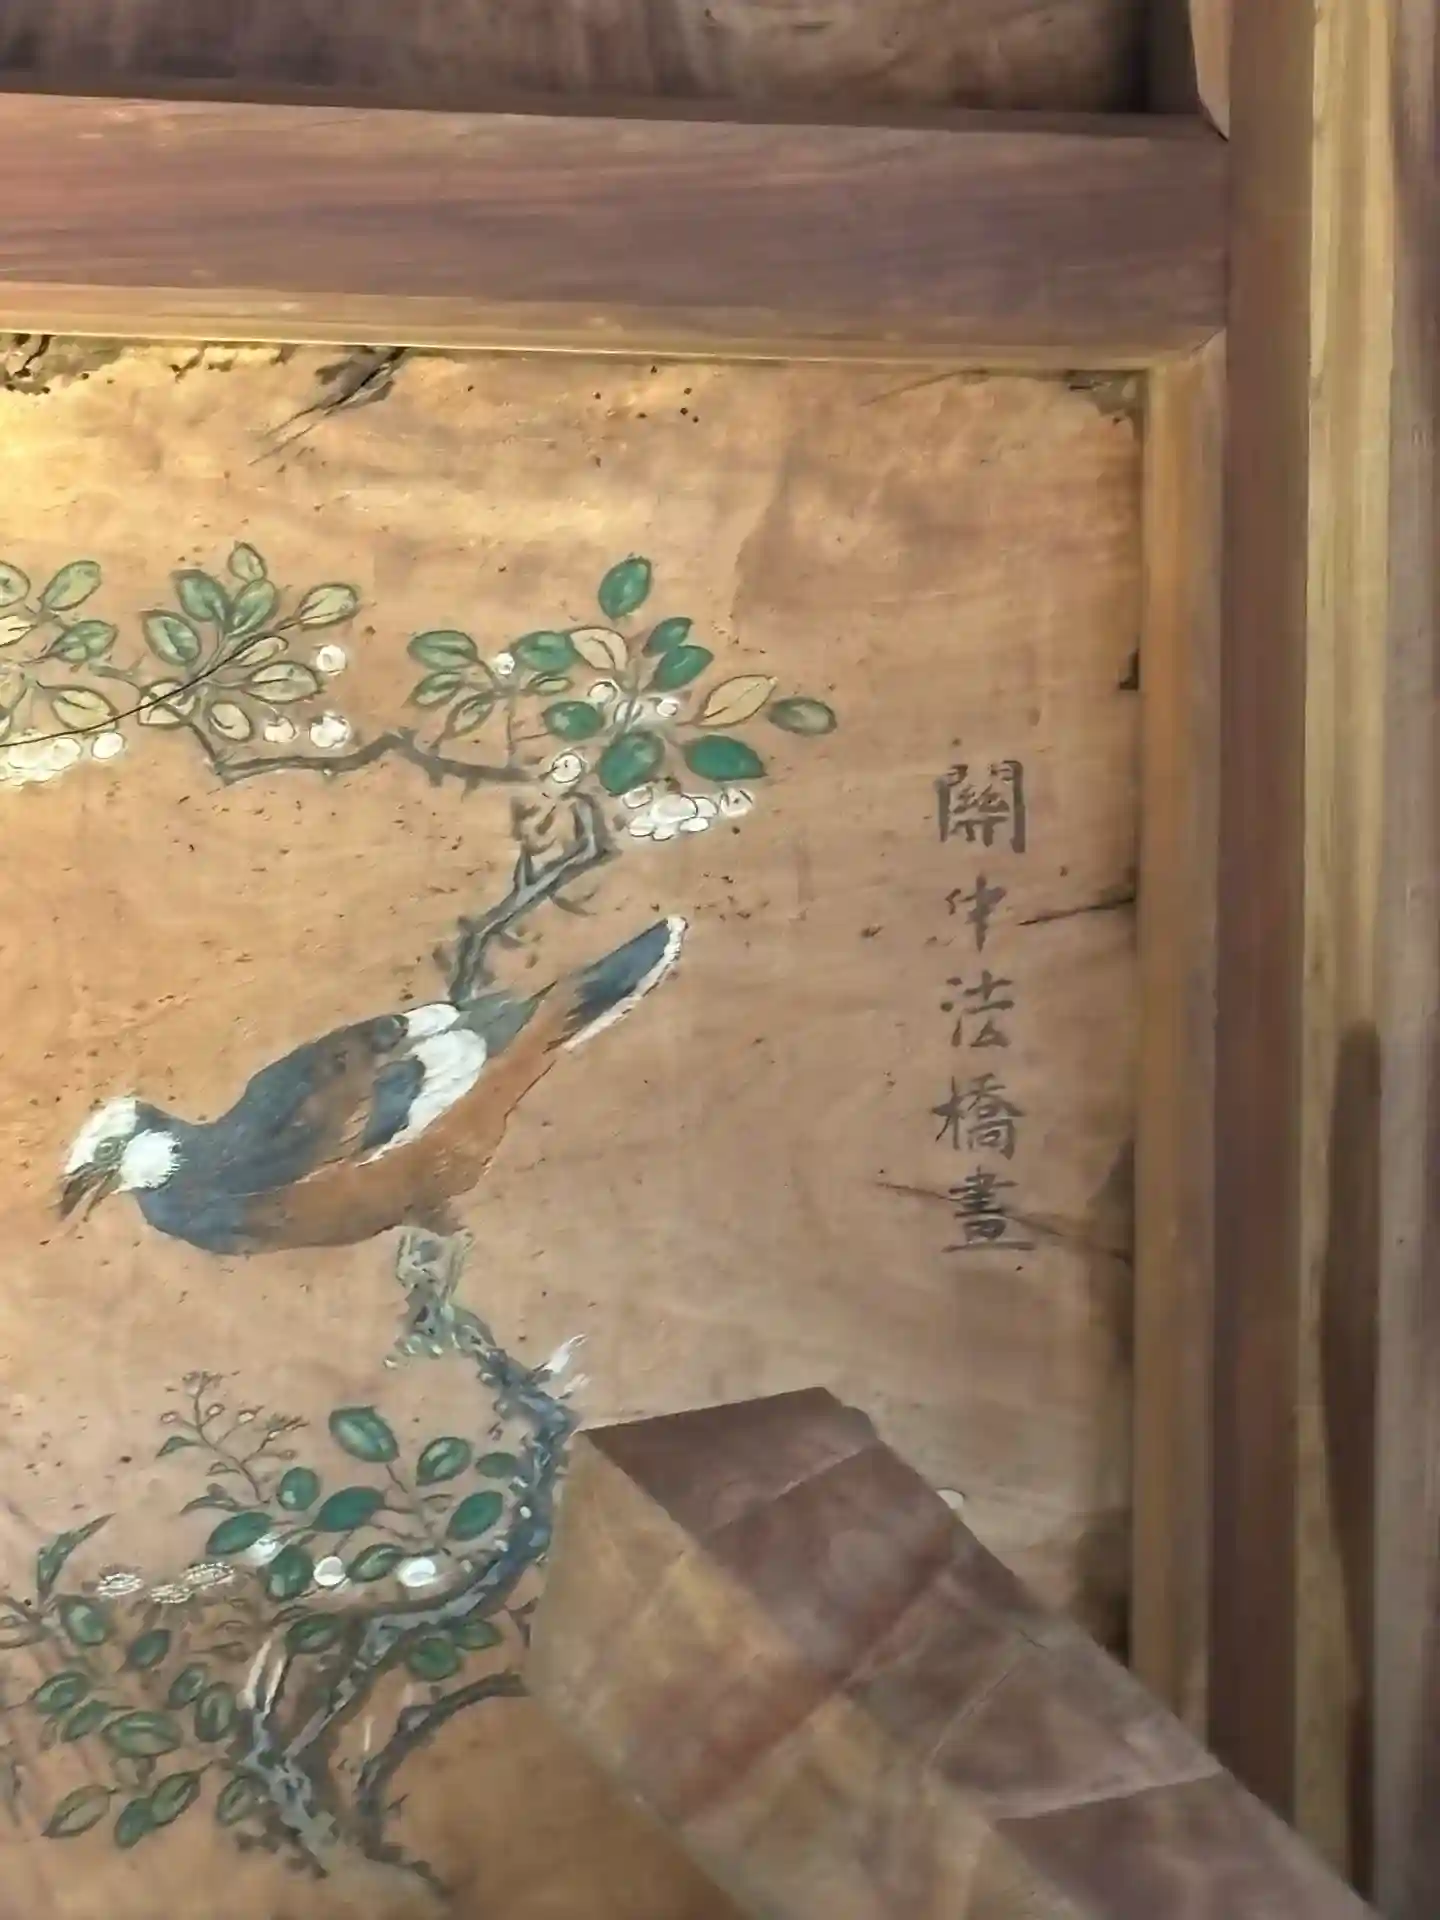 關牛法橋畫